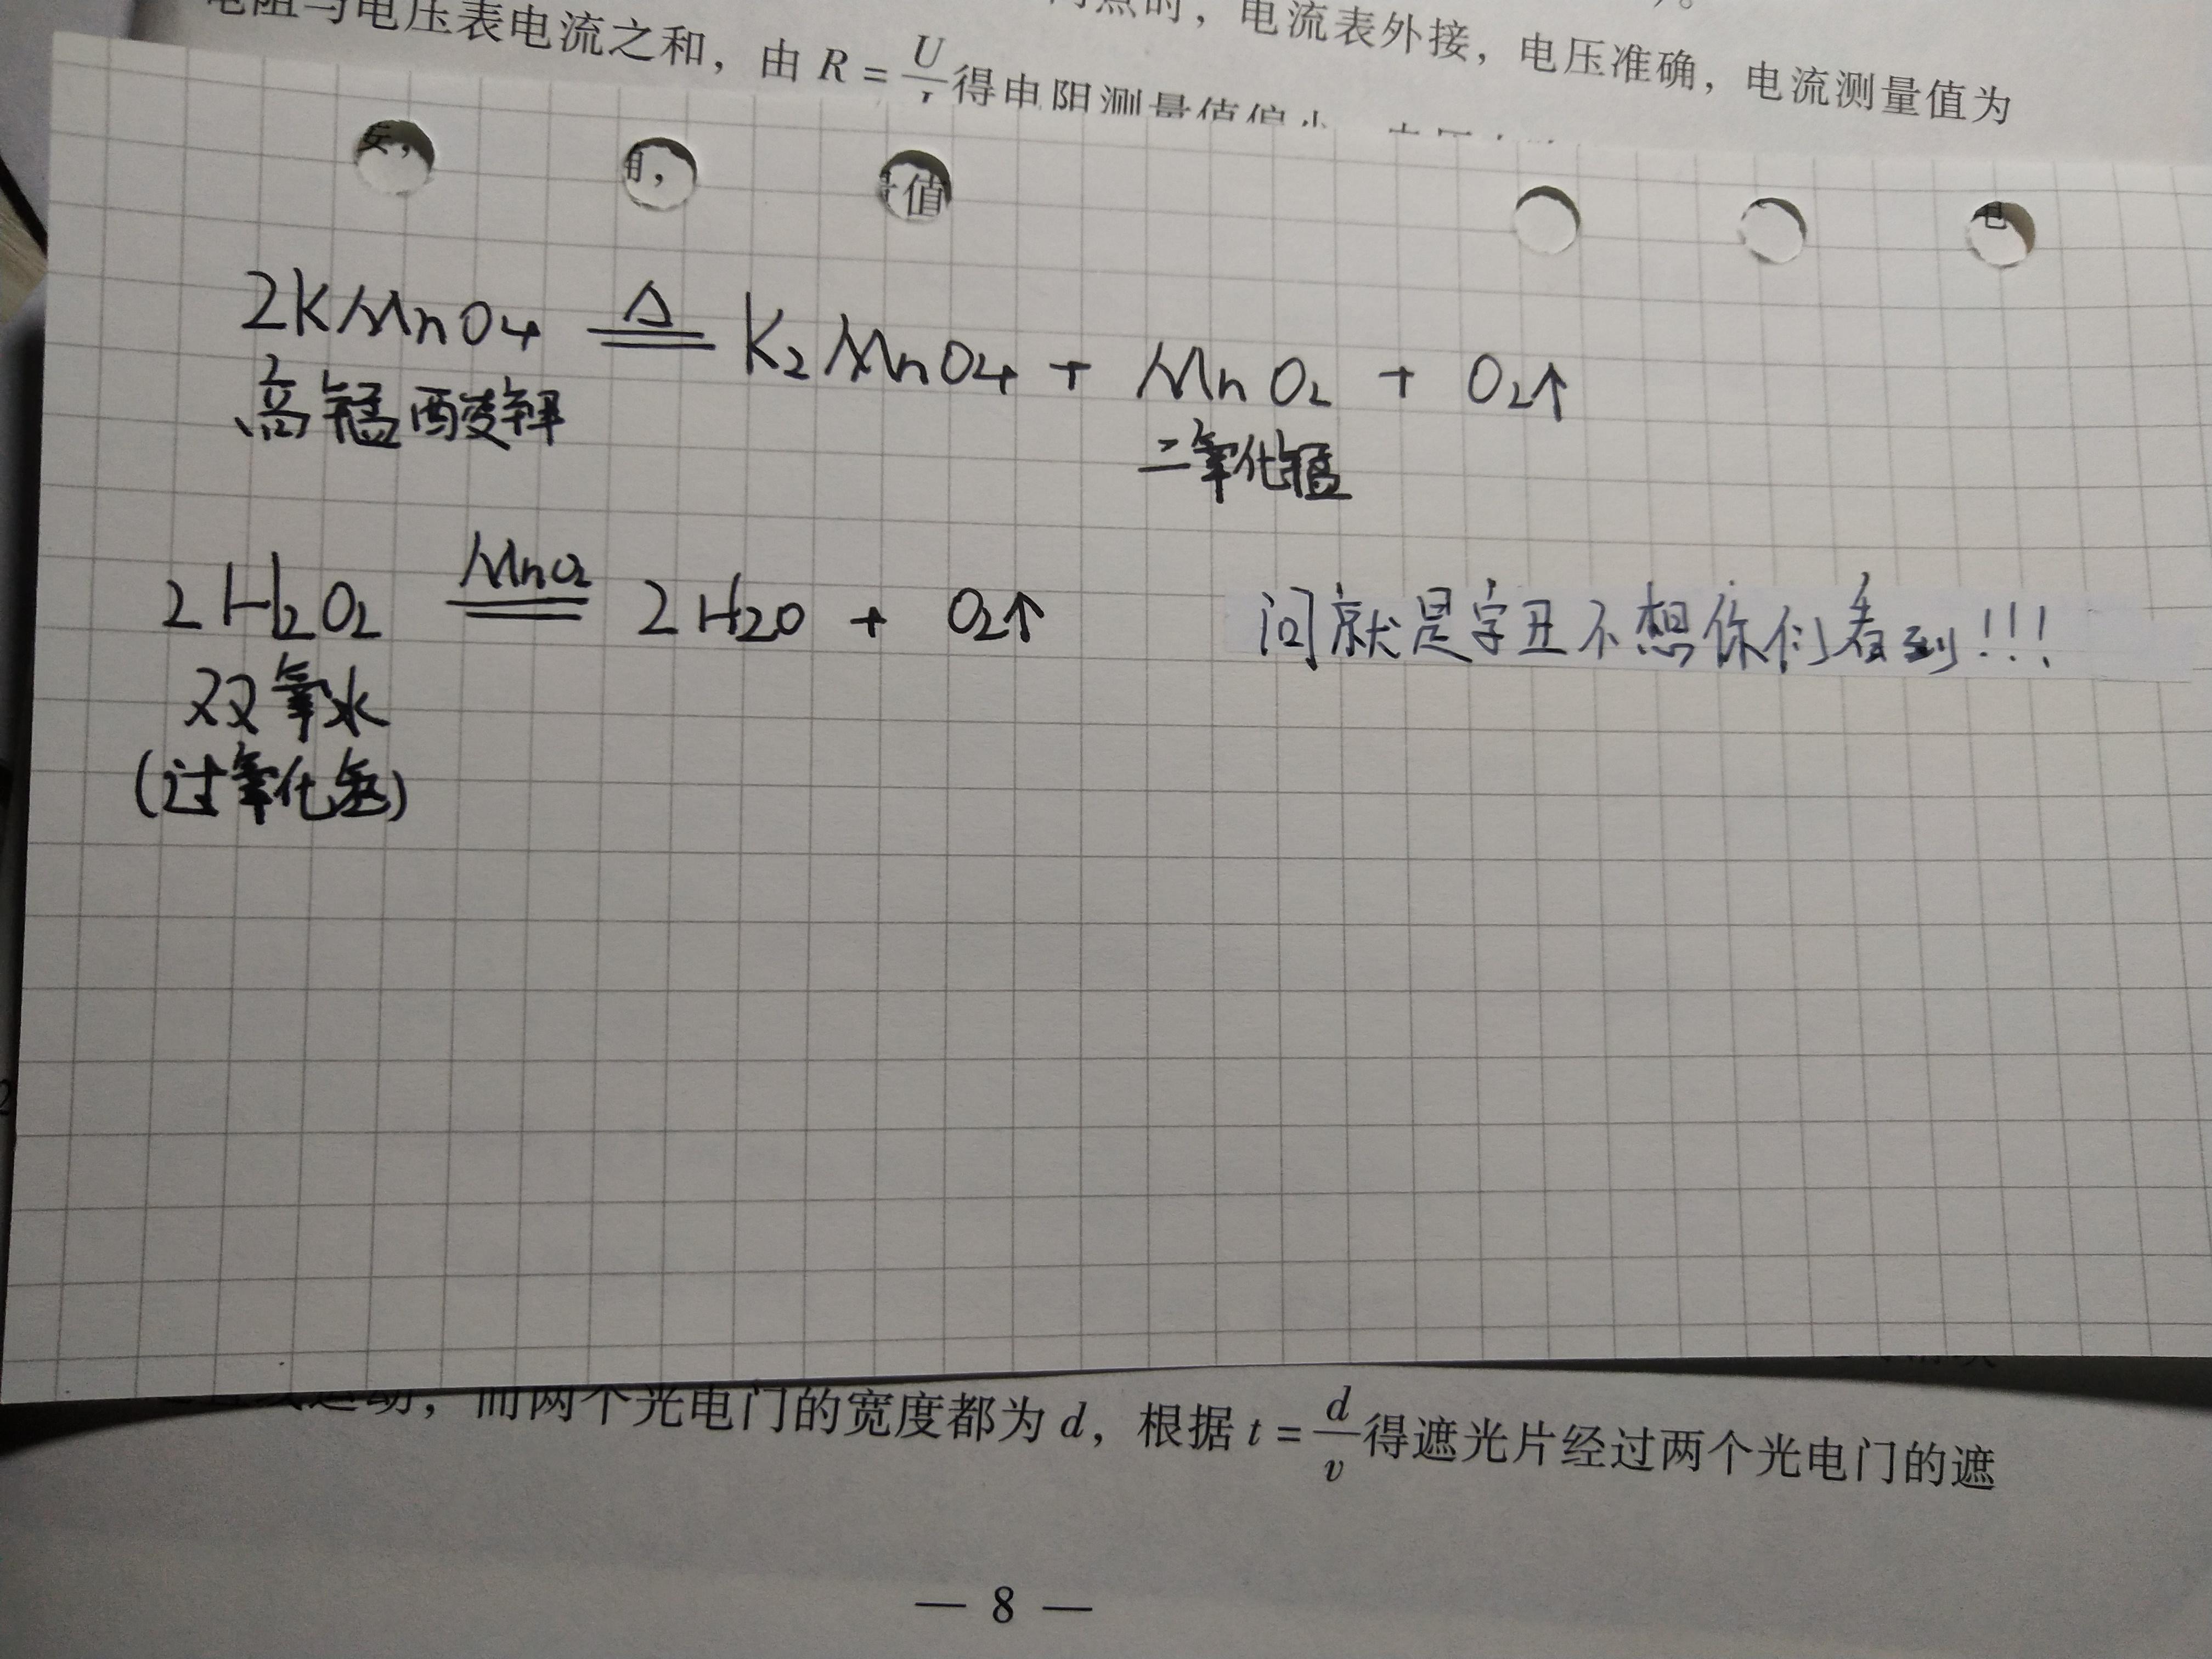 电阻与电压表电流之和，由 R = U/I 得电阻测量值偏小
时，电流表外接，电压准确，电流测量值为
值
电
2KMnO4 =△= K2MnO4 + MnO2 + O2↑
高锰酸钾
二氧化锰
2H2O2 =MnO2= 2H2O + O2↑
问就是字丑不想你们看到!!!
双氧水
(过氧化氢)
而两个光电门的宽度都为 d，根据 t = d/v 得遮光片经过两个光电门的遮
— 8 —